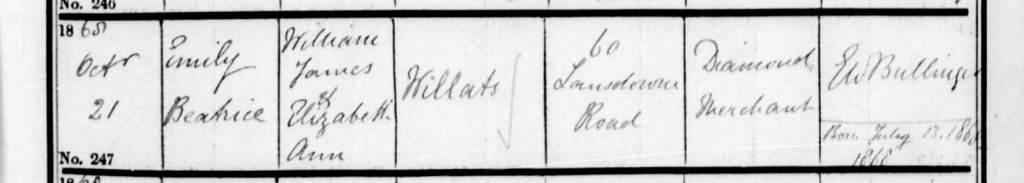 No. 246
1868
Octr
21
Emily
Beatrice
William
James
&
Elizabeth
Ann
Willats
60
Lansdowne
Road
Diamond
Merchant
EW Bullinger
Born July 13. 186
1868
No. 247